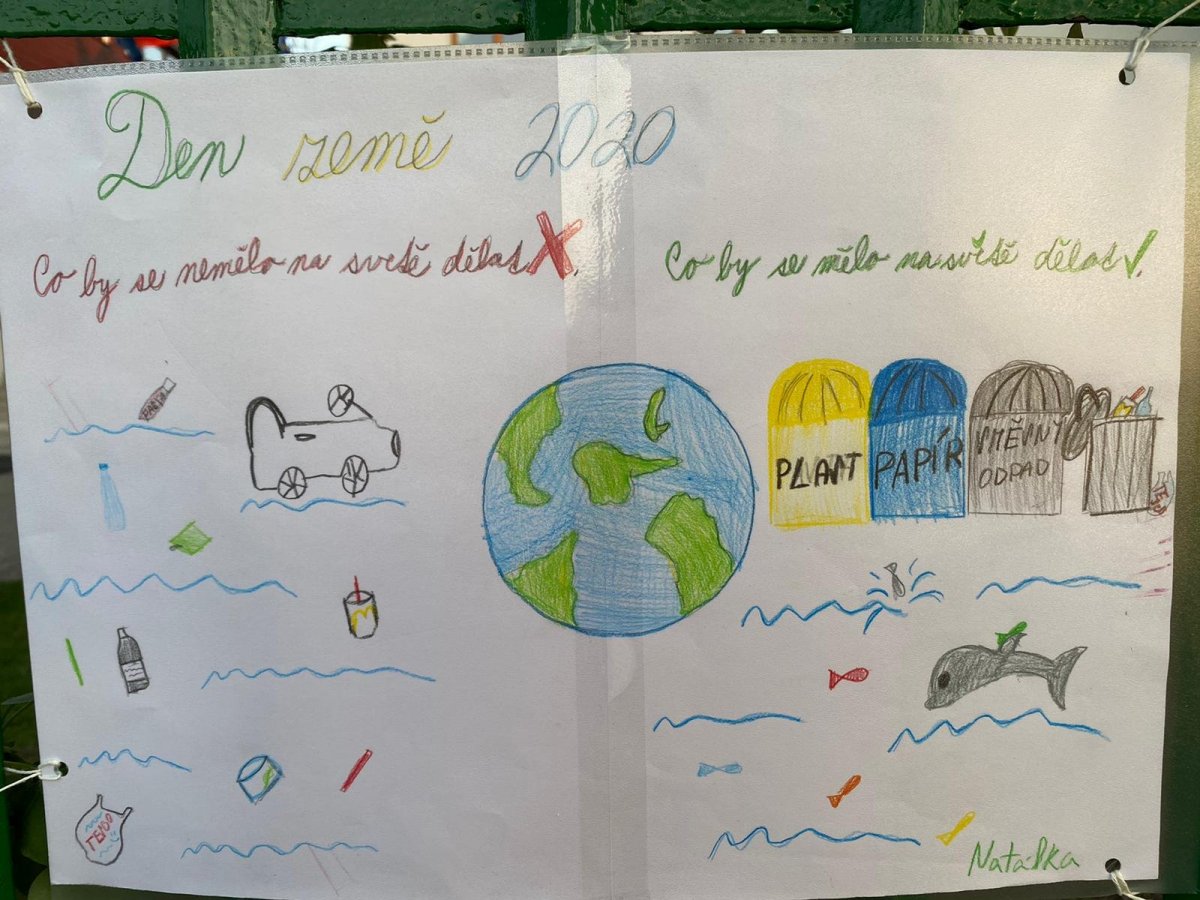 Den země 2020
Co by se nemělo na světě dělat X.
Co by se mělo na světě dělat ✓.
PLAST
PAPÍR
SMĚSNÝ
ODPAD
M
TESCO
Natálka